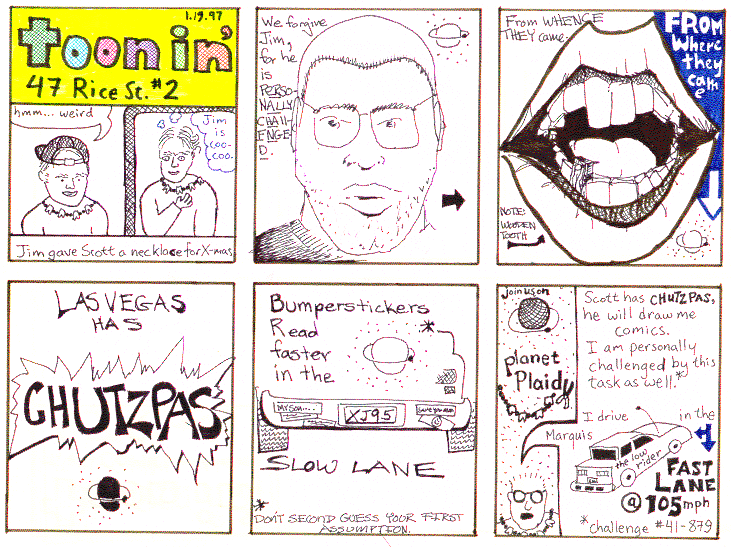 1.19.97
toon in'
47 Rice St. #2
hmm... weird
Jim
is
coo-
coo.
Jim gave Scott a necklace for X-mas
We forgive
Jim,
for he
is
PERSO-
NALLY
CHALL-
ENGE
D.
From WHENCE
THEY came.
FROM
Where
they
came
NOTE:
WOODEN
TOOTH
LAS VEGAS
HAS
CHUTZPAS
Bumperstickers
Read *
faster
in the
My Son...
XJ95
SLOW LANE
*
DON'T SECOND GUESS YOUR FIRST
ASSUMPTION.
Join us on
planet
Plaid
Scott has CHUTZPAS,
he will draw me
comics.
I am personally
challenged by this
task as well.*
I drive in the
Marquis
the low
rider
FAST
LANE
@ 105 mph
*challenge #41-879